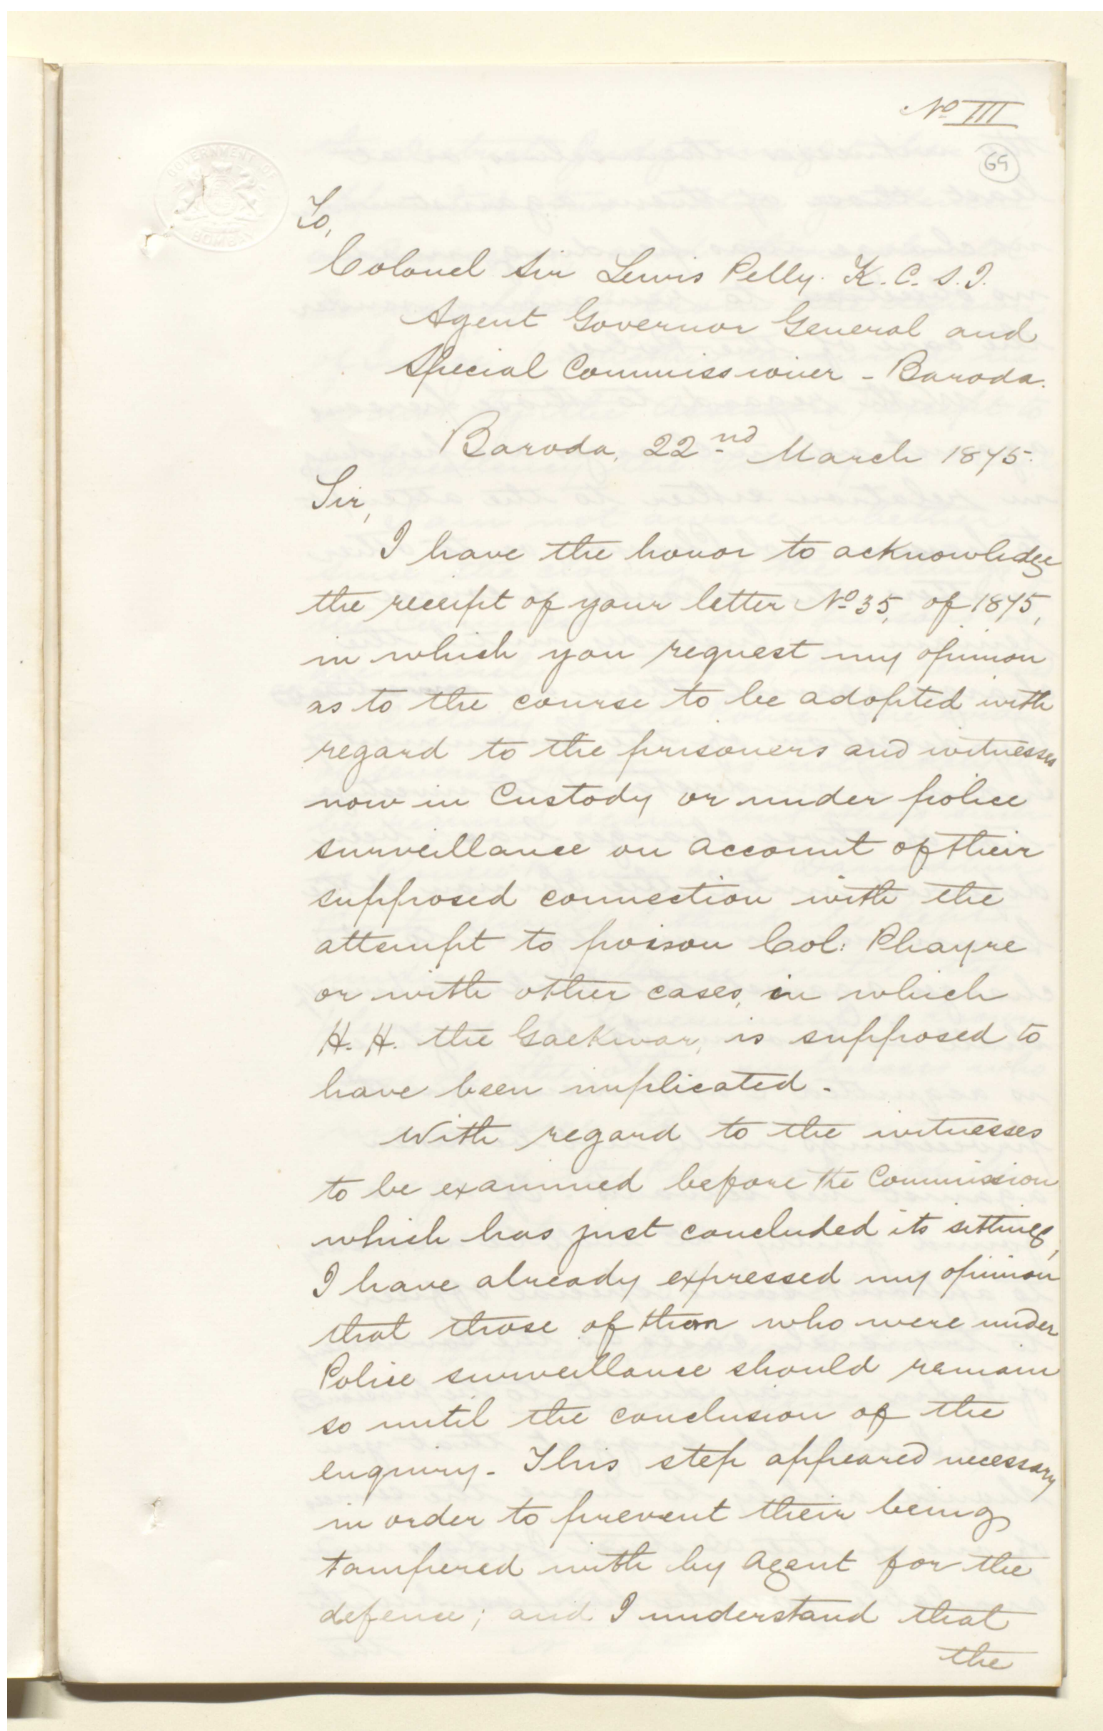 No III
69
GOVERNMENT OF
BOMBAY
To,
Colonel Sir Lewis Pelly. K.C.S.I.
Agent Governor General and
Special Commissioner - Baroda.
Baroda, 22nd March 1875.
Sir,
I have the honor to acknowledge
the receipt of your letter No 35, of 1875,
in which you request my opinion
as to the course to be adopted with
regard to the prisoners and witnesses
now in Custody or under police
surveillance on account of their
supposed connection with the
attempt to poison Col: Phayre
or with other cases, in which
H. H. the Gaekwar, is supposed to
have been implicated.
With regard to the witnesses
to be examined before the Commission
which has just concluded its sittings,
I have already expressed my opinion
that those of them who were under
Police surveillance should remain
so until the conclusion of the
enquiry. This step appeared necessary
in order to prevent their being
tampered with by Agent for the
defence; and I understand that
the